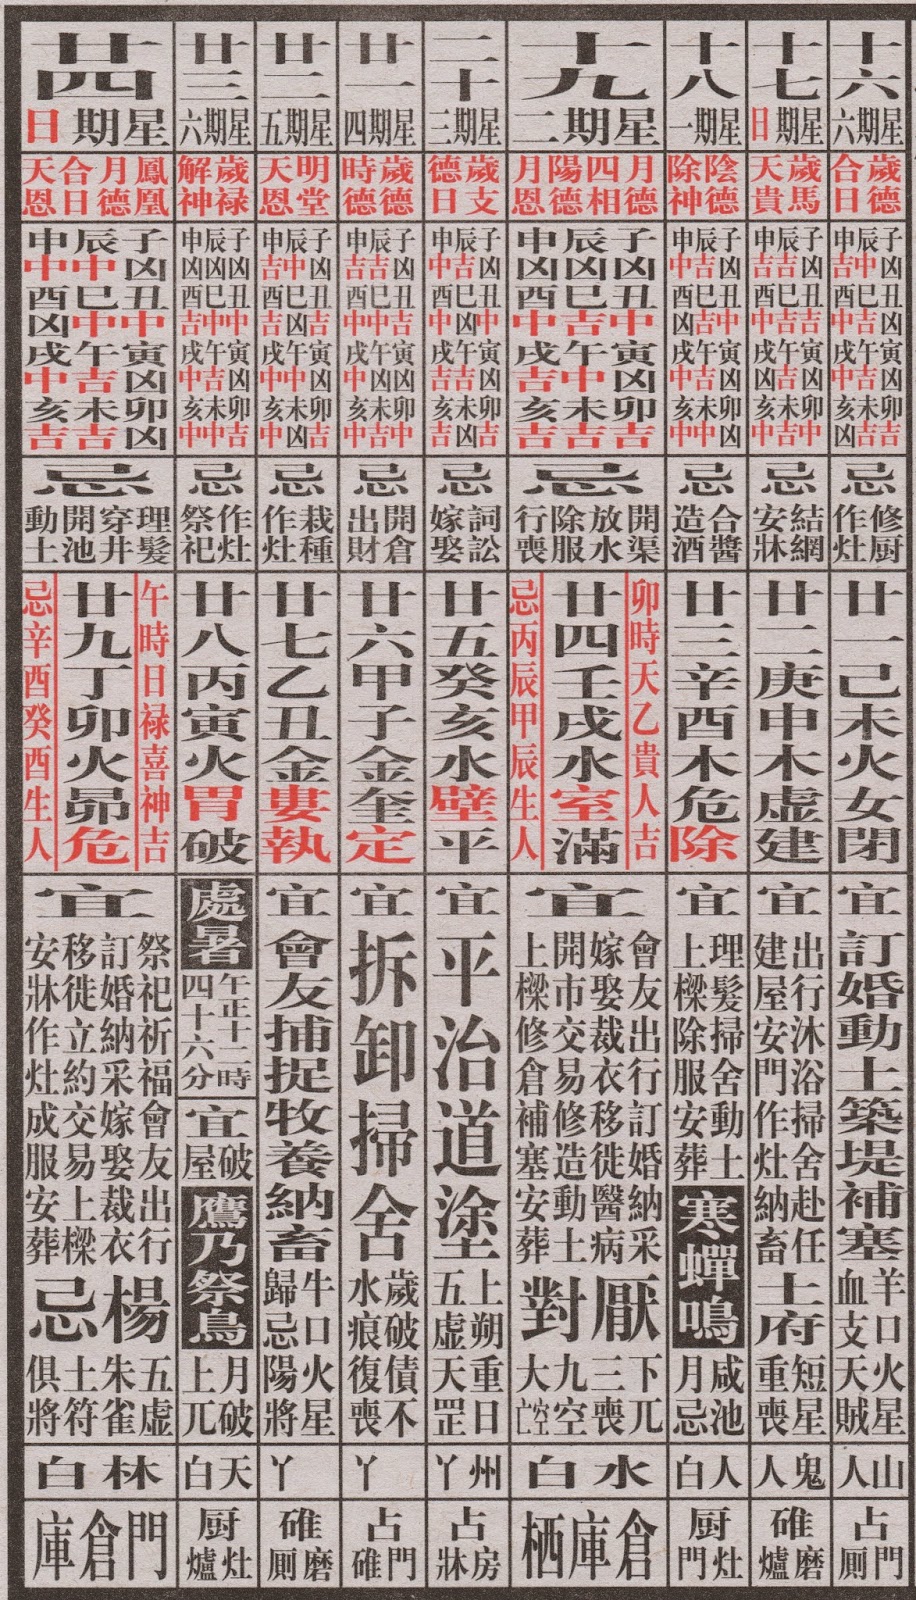 十六
星期六
歲德
合日
子凶丑吉寅凶卯吉
辰中巳中午中未吉
申吉酉中戌吉亥凶
忌
修厨
作灶
廿一己未火女閉
宜
訂婚動土築堤補塞
羊口火星
血支天賊
山人
占
門厠
十七
星期日
歲馬
天貴
子凶丑吉寅凶卯中
辰吉巳吉午吉未吉
申吉酉中戌凶亥中
忌
結網
安牀
廿二庚申木虛建
宜
出行沐浴掃舍赴任
建屋安門作灶納畜
土府
短星
重喪
鬼人
碓
磨爐
十八
星期一
陰德
除神
子凶丑中寅凶卯凶
辰吉巳吉午吉未中
申中酉凶戌中亥中
忌
合醬
造酒
廿三辛酉木危除
宜
理髮掃舍動土
上樑除服安葬
寒蟬鳴
咸池
月忌
人白
厨
灶門
十九
星期二
月德
四相
陽德
月恩
子凶丑中寅凶卯吉
辰凶巳吉午中未吉
申凶酉中戌吉亥吉
忌
開渠
放水
除服
行喪
卯時天乙貴人吉
廿四壬戌水室滿
忌丙辰甲辰生人
宜
會友出行訂婚納采
嫁娶裁衣移徙醫病
開市交易修造動土
上樑修倉補塞安葬
厭對
下兀
三喪
九空
大空亡
水白
倉庫栖
二十
星期三
歲支
德日
子凶丑中寅凶卯吉
辰吉巳凶午吉未凶
申中酉中戌吉亥吉
忌
詞訟
嫁娶
廿五癸亥水壁平
宜
平治道塗
上朔重日
五虛天罡
州丫
占
房牀
廿一
星期四
歲德
時德
子凶丑吉寅凶卯中
辰吉巳中午凶未吉
申吉酉中戌中亥中
忌
開倉
出財
廿六甲子金奎定
宜
拆卸掃舍
歲破債不
水痕復喪
丫
占
門碓
廿二
星期五
明堂
天恩
子凶丑吉寅凶卯吉
辰中巳凶午中未凶
申吉酉吉戌中亥中
忌
栽種
作灶
廿七乙丑金婁執
宜
會友捕捉牧養納畜
牛口火星
歸忌陽將
丫
碓
磨厠
廿三
星期六
歲禄
解神
子凶丑中寅凶卯吉
辰凶巳中午吉未中
申凶酉吉戌中亥中
忌
作灶
祭祀
廿八丙寅火胃破
處暑
午正十二時
四十六分
宜
破屋
鷹乃祭鳥
月破
上兀
天白
厨
灶爐
廿四
星期日
鳳凰
月德
合日
天恩
子凶丑中寅凶卯凶
辰中巳中午吉未吉
申中酉凶戌中亥吉
忌
理髮
穿井
開池
動土
午時日禄喜神吉
廿九丁卯火昴危
忌辛酉癸酉生人
宜
祭祀祈福會友出行
訂婚納采嫁娶裁衣
移徙立約交易上樑
安牀作灶成服安葬
楊忌
五虛
朱雀
土符
俱將
林白
門倉庫